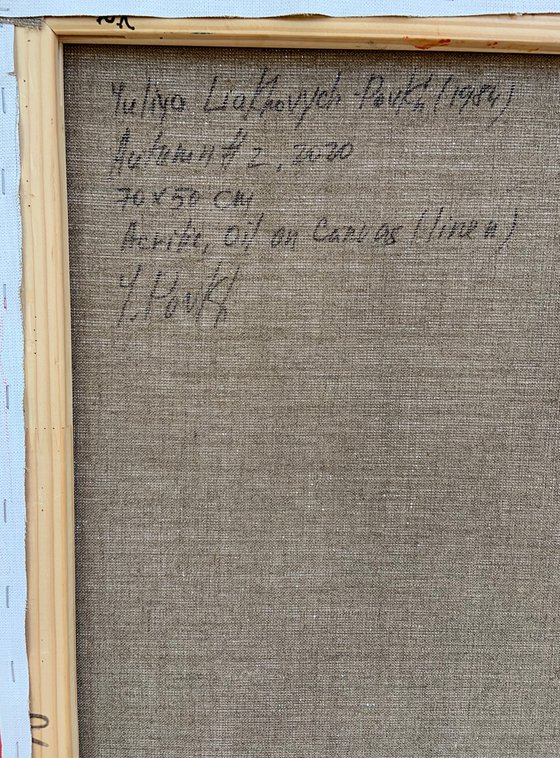 Yuliya Liakhovych-Povkh (1984)
Autumn # 2, 2020
70x50 cm
Acrilic, Oil on Canvas (linen)
Y. Povkh